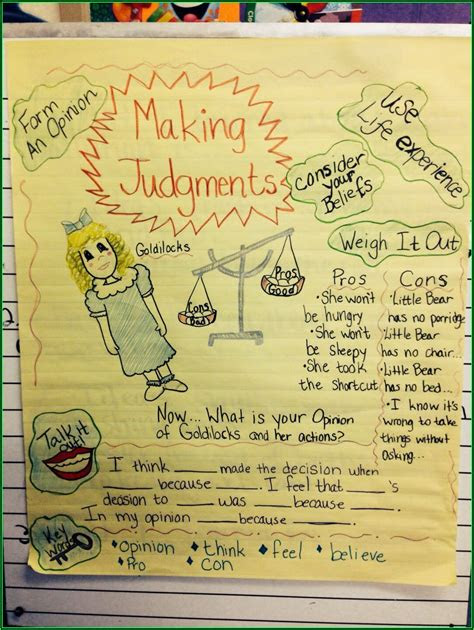 Form
An Opinion
Making
Judgments
Use
Life experience
Consider
your
Beliefs
Weigh It Out
Goldilocks
Cons
(Bad)
Pros
Good
Pros
• She won't
be hungry
• She won't
be sleepy
• She took
the shortcut
Cons
• Little Bear
has no porridge
• Little Bear
has no chair...
• Little Bear
has no bed...
• I know it's
wrong to take
things without
asking...
Now... What is your Opinion
of Goldilocks and her actions?
Talk it
out!
I think ____ made the decision when
____ because ____. I feel that ____'s
decision to ____ was ____ because ____.
In my opinion ____ because ____.
Key
Words
Opinion think feel believe
Pro Con